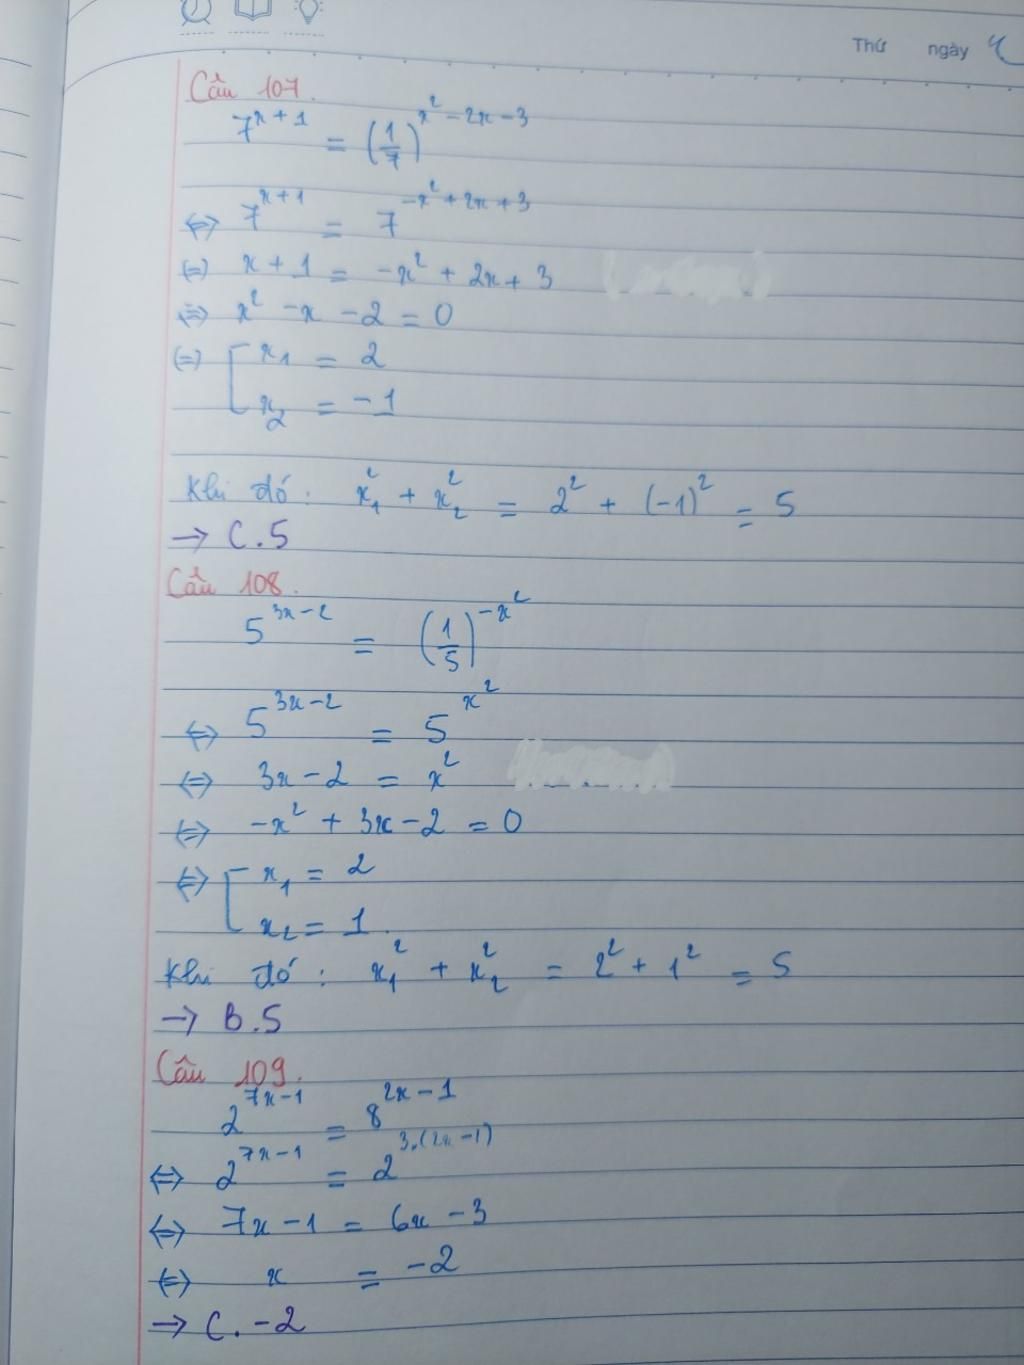 Thứ ngày
Câu 107.
7^{x+1} = (1/7)^{x²-2x-3}
⇔ 7^{x+1} = 7^{-x²+2x+3}
⇔ x + 1 = -x² + 2x + 3
⇔ x² - x - 2 = 0
⇔ [ x₁ = 2
x₂ = -1
Khi đó: x₁² + x₂² = 2² + (-1)² = 5
→ C.5
Câu 108.
5^{3x-2} = (1/5)^{-x²}
⇔ 5^{3x-2} = 5^{x²}
⇔ 3x - 2 = x²
⇔ -x² + 3x - 2 = 0
⇔ [ x₁ = 2
x₂ = 1
Khi đó: x₁² + x₂² = 2² + 1² = 5
→ B.5
Câu 109.
2^{7x-1} = 8^{2x-1}
⇔ 2^{7x-1} = 2^{3.(2x-1)}
⇔ 7x - 1 = 6x - 3
⇔ x = -2
→ C. -2